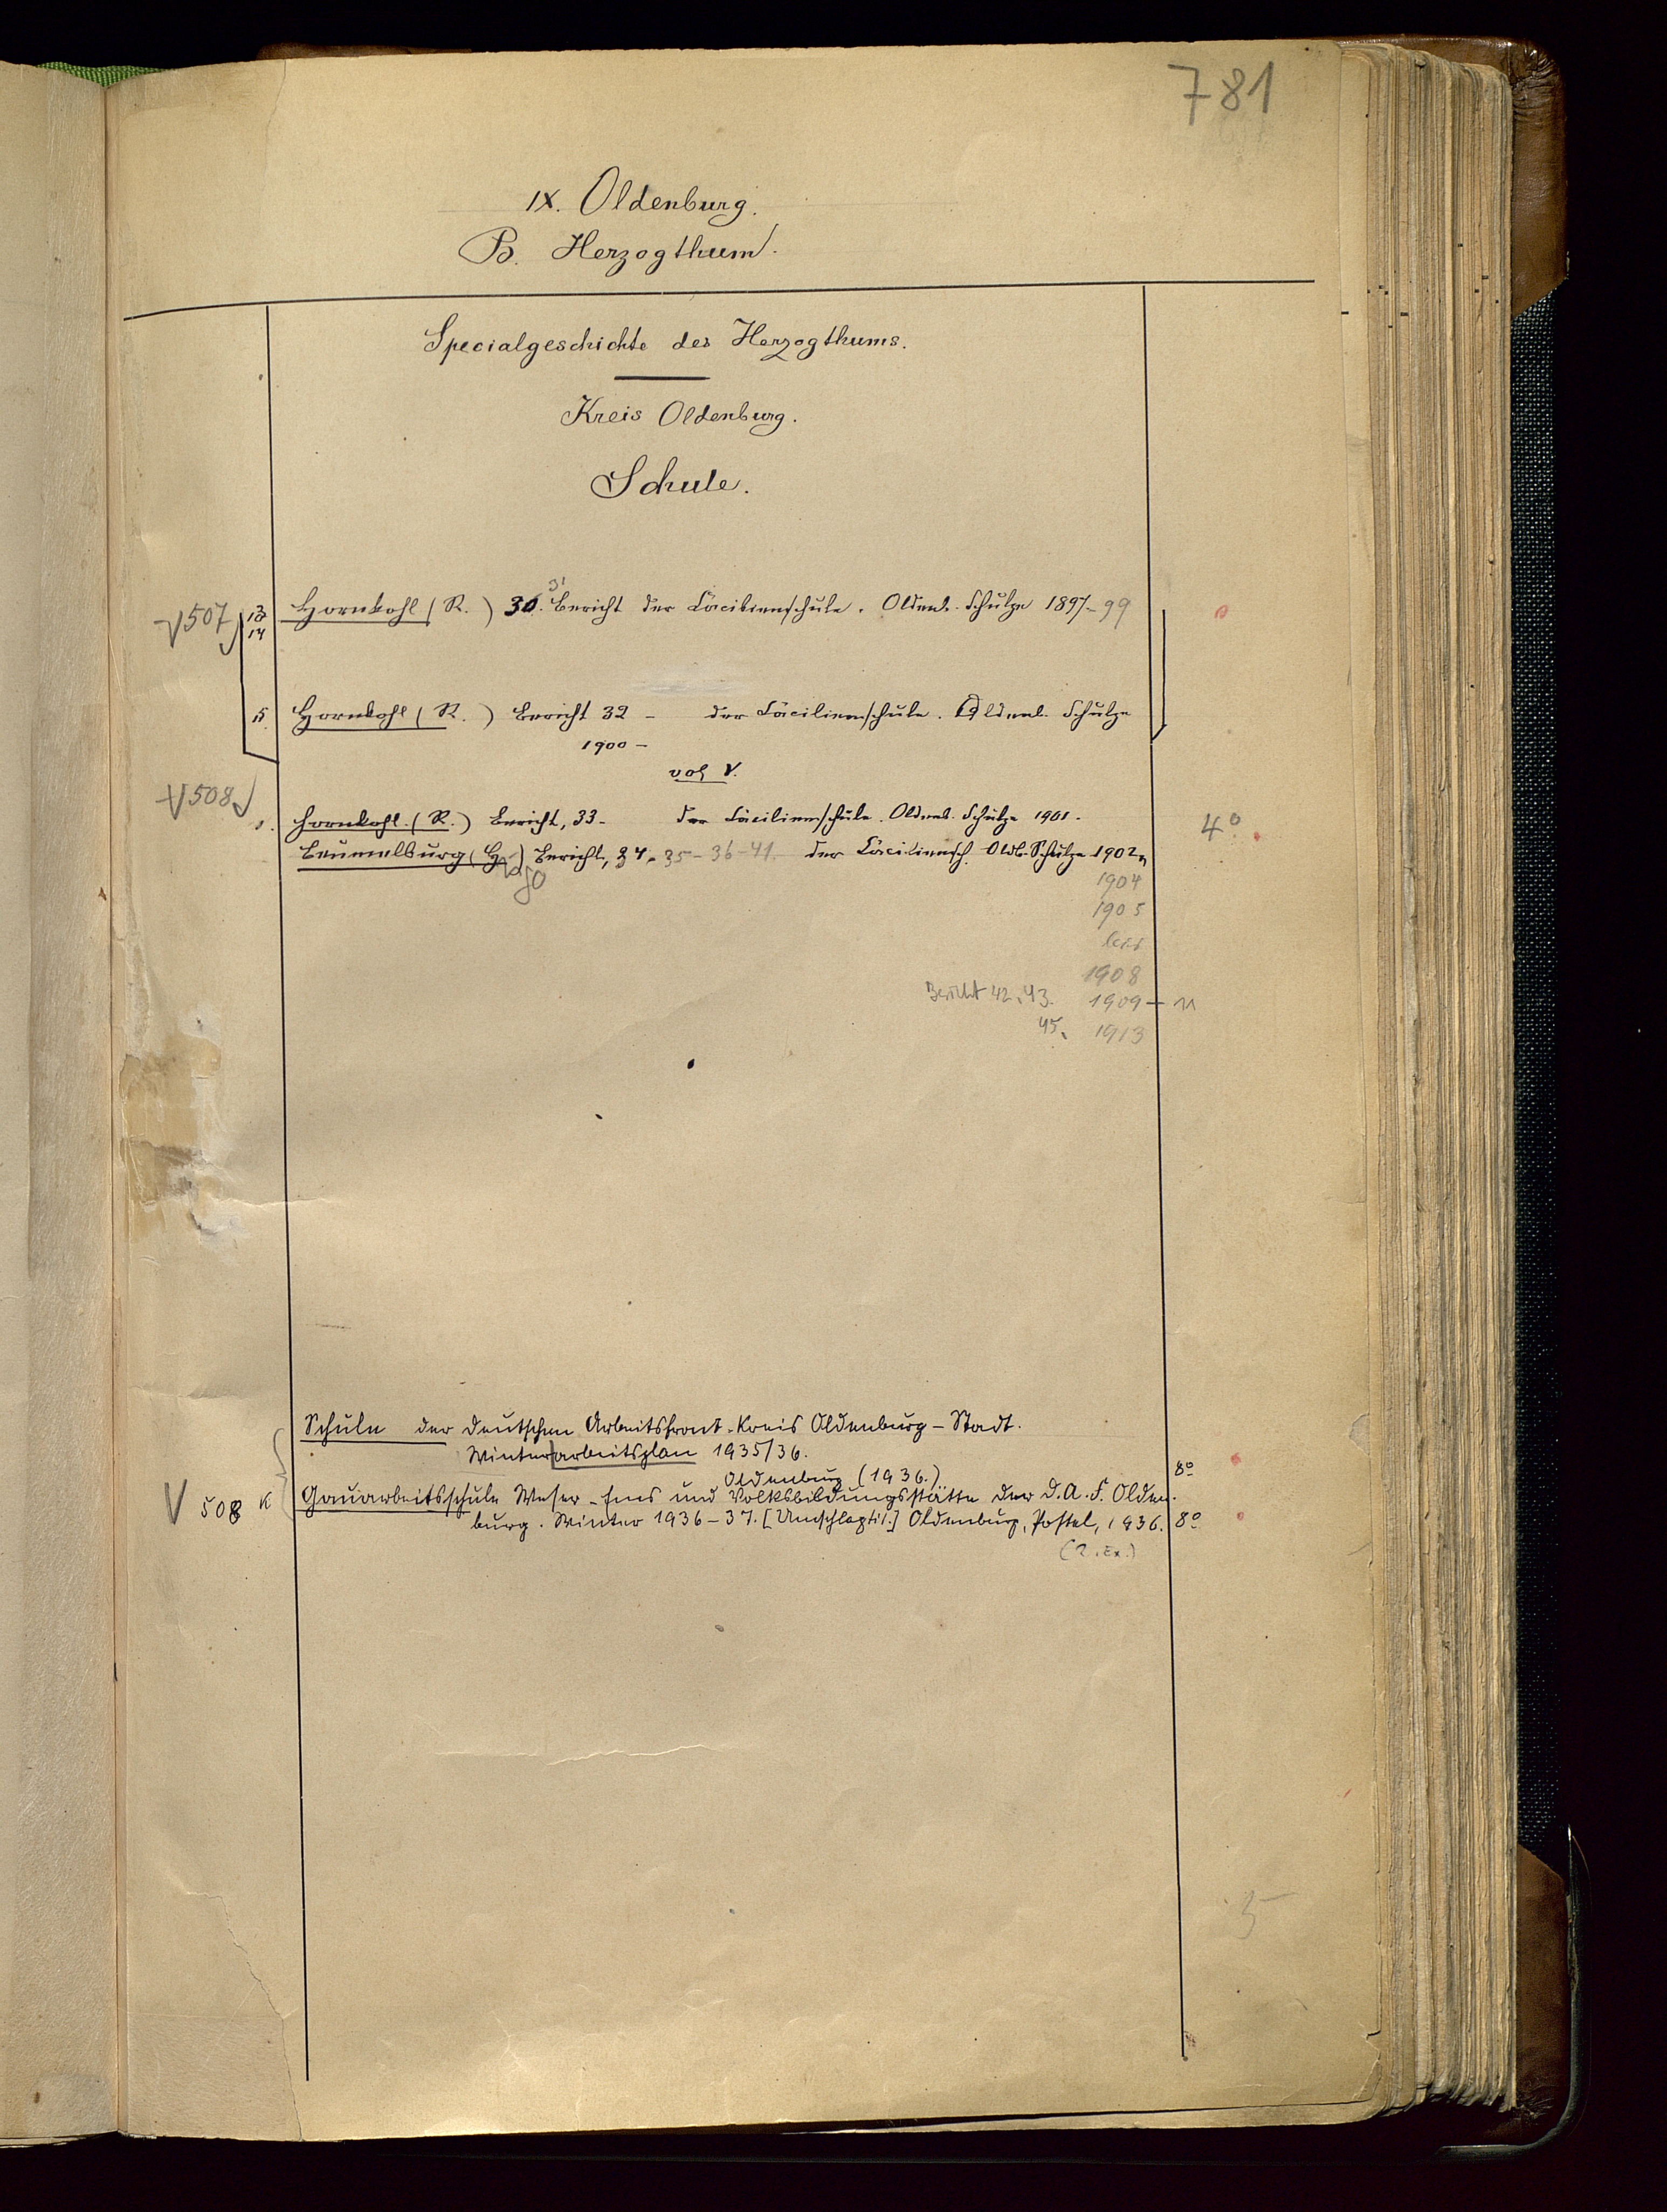 781
IX. Oldenburg.
B. Herzogthum.
Specialgeschichte des Herzogthums.
Kreis Oldenburg.
Schule.
V 507 13 Hornkohl (R.) 30. 31 Bericht der Cäcilienschule. Oldenb. Schulze 1897-99
14
15. Hornkohl (R.) Bericht 32 - der Cäcilienschule. Oldenb. Schulze
1900 -
vol V.
V 508 1. Hornkohl. (R.) Bericht, 33- der Cäcilienschule. Oldenb. Schulze 1901. 4°
Beumelburg (H.) Bericht, 34, 35-36-41. der Cäciliensch. Oldb. Schulze 1902,
1904
1905
bis
1908
Bericht 42, 43. 1909 - 11
45. 1913
Schule der deutschen Arbeitsfront. Kreis Oldenburg-Stadt.
Winterarbeitsplan 1935/36.
Oldenburg (1936.) 8°
V 508 K Gauarbeitsschule Weser-Ems und Volksbildungsstätte der D.A.F. Olden-
burg. Winter 1936-37. [Umschlagtit.] Oldenburg, Postel, 1936. 8°
(2. Ex.)